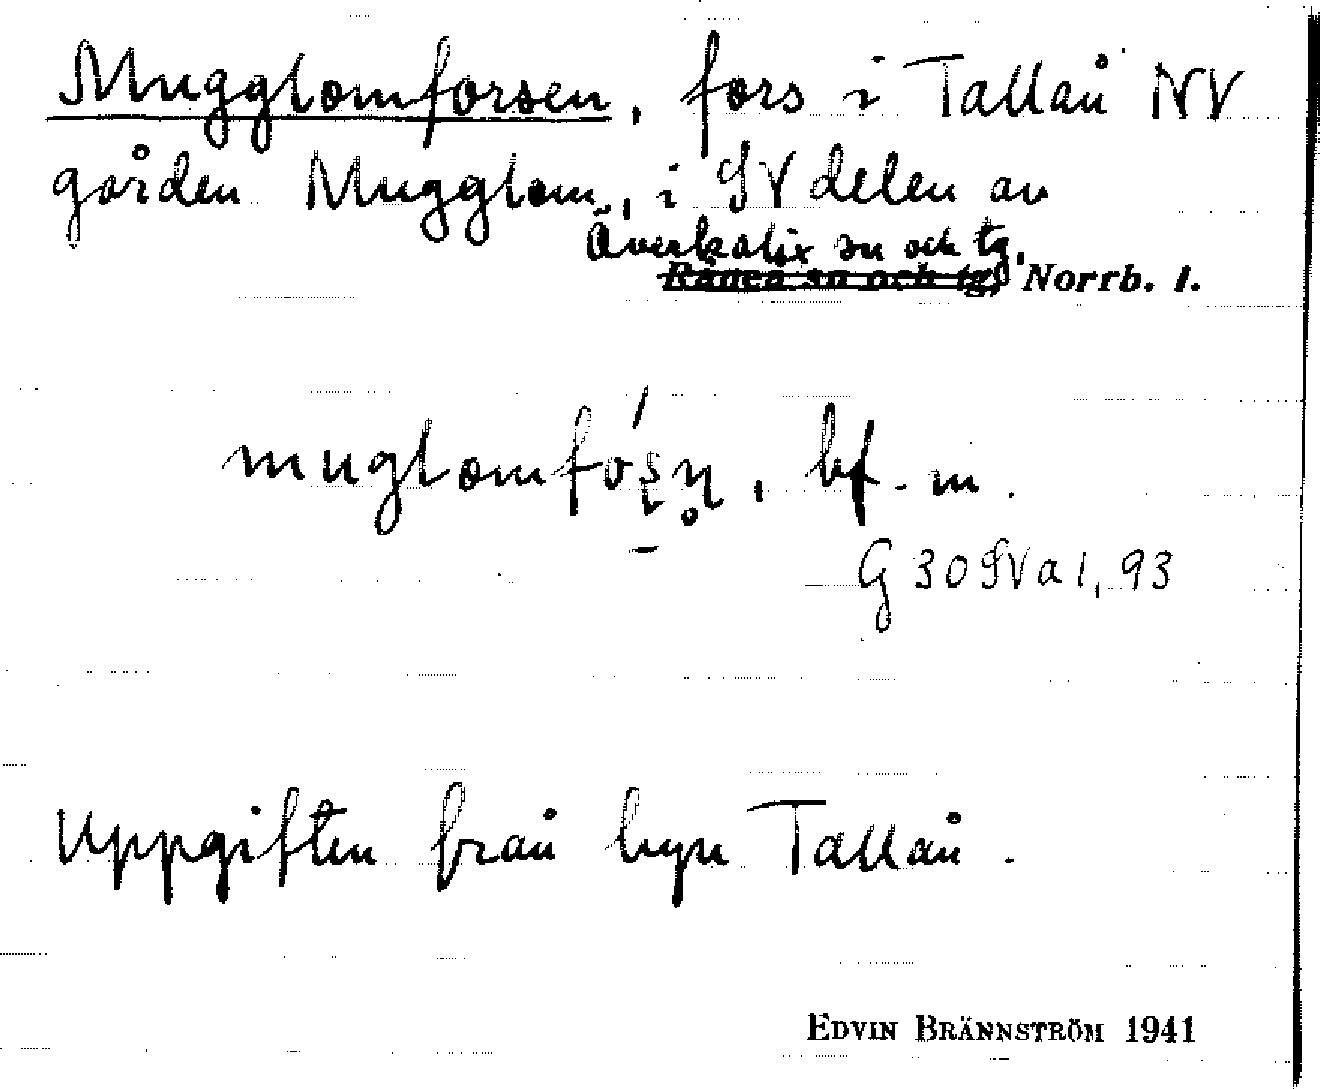 Mugglomforsen, fors i Tallån NV
gården Mugglom, i SV delen av
Överkalix sn och tg,
Råneå sn och tg, Norrb. l.
muglomfóṣn̥, bf. m.
G 30 SV a 1, 93
Uppgiften från byn Tallån.
EDVIN BRÄNNSTRÖM 1941